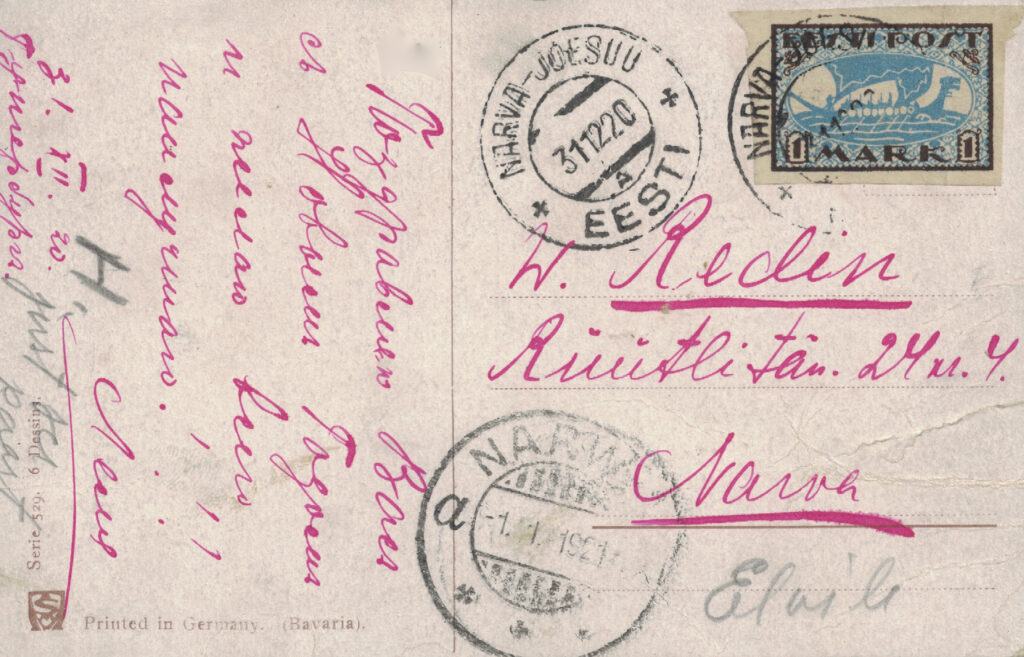 Поздравляю Васъ
съ Новымъ Годомъ
и желаю всего
наилучшаго.
31. XII. 20.
Гунгербургъ
H.
Serie 529. 6 Dessins.
Printed in Germany. (Bavaria).
NARVA-JOESUU
311220
A
EESTI
EESTI POST
1 MARK 1
NARVA-JOESUU
W. Redin
Rüütli tän. 24 nr. 4.
Narva
NARWA
a
-1. 1. 1921